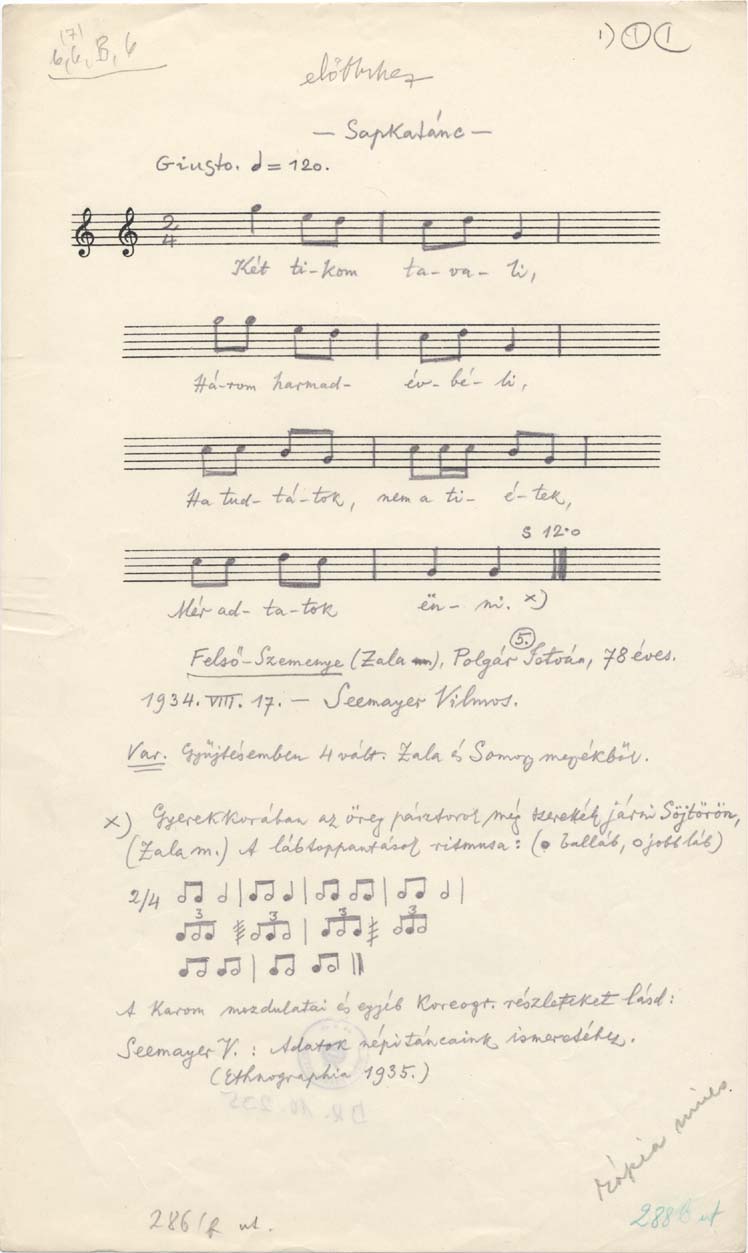 (7)
6, 6, B, 6
1) 1 1
— Sapkatánc —
Giusto. = 120.
2
4
Két ti-kom ta-va-li,
Há-rom harmad- év-bé-li,
Ha tud-tá-tok, nem a ti- é-tek,
S 12·0
Mér ad-ta-tok ën-ni. x)
5.
Felső-Szemenye (Zala m), Polgár István, 78 éves.
1934. VIII. 17. — Seemayer Vilmos.
Var. Gyűjtésemben 4 vált. Zala és Somogy megyékből.
x) Gyerekkorában az öreg pásztorok még szerették járni Söjtörön,
(Zala m.) A lábtoppantások ritmusa: ( balláb, jobbláb)
2/4
3 3 3 3
A karom mozdulatai és egyéb koreogr. részleteket lásd:
Seemayer V.: Adatok népi táncaink ismeretéhez.
(Ethnographia 1935.)
kópia nincs.
286/f ut.
288 ut